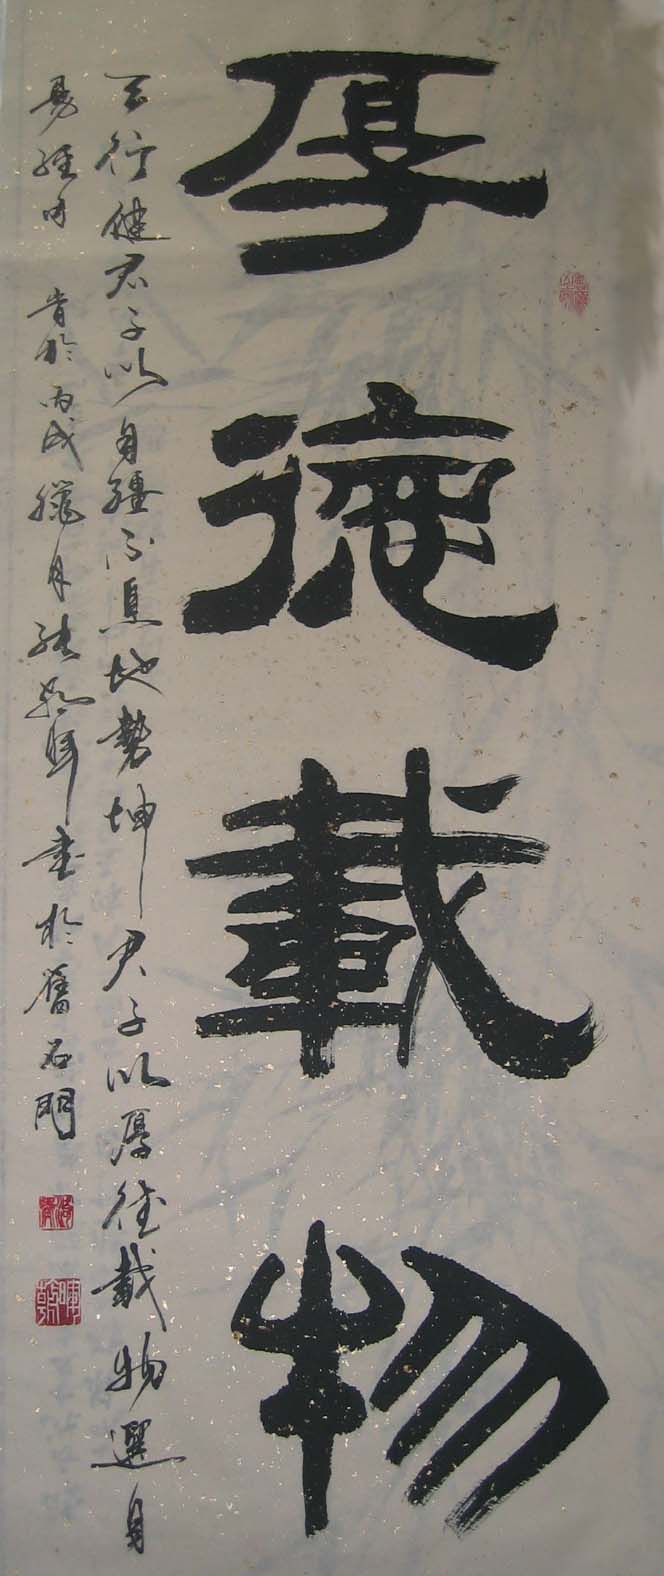 厚德載物
天行健君子以自强不息地勢坤君子以厚德載物選自
易經句 時於丙戌臘月 書於舊石門